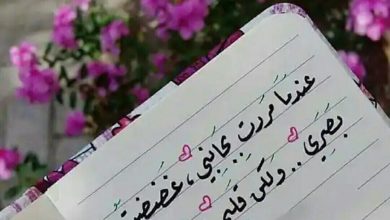 عندما مررتِ بجانبي، غضضتُ
بصري.. ولكن قلبي